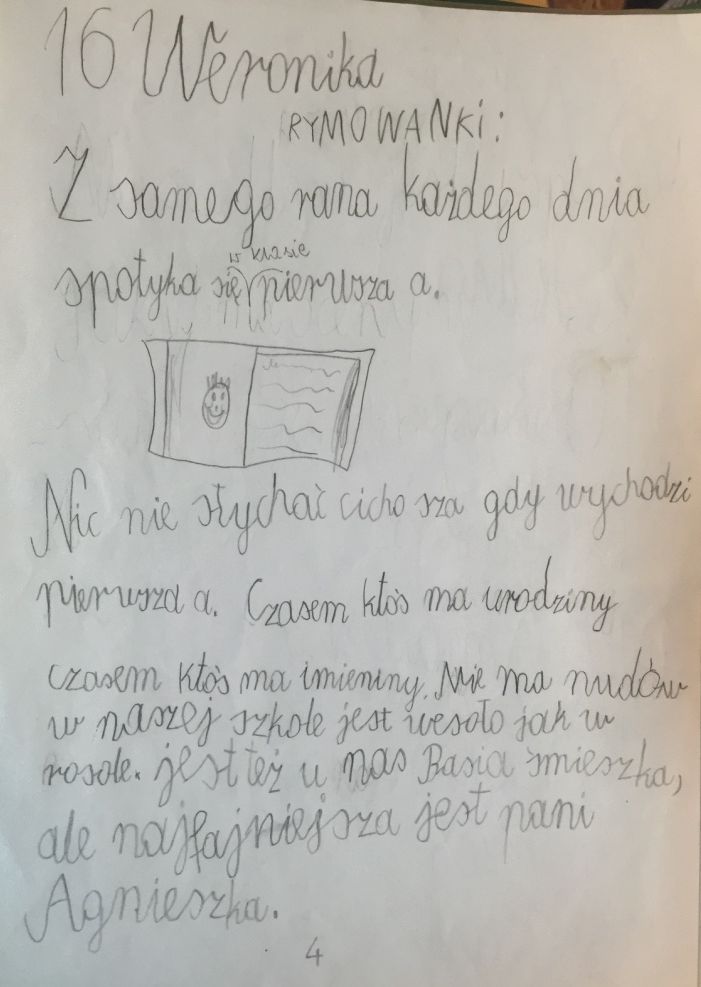 16 Weronika
RYMOWANKI:
Z samego rana każdego dnia
w klasie
spotyka się pierwsza a.
Nic nie słychać cicho sza gdy wychodzi
pierwsza a. Czasem ktoś ma urodziny
czasem ktoś ma imieniny. Nie ma nudów
w naszej szkole jest wesoło jak w
rosole. jest też u nas Basia śmieszka,
ale najfajniejsza jest pani
Agnieszka.
4